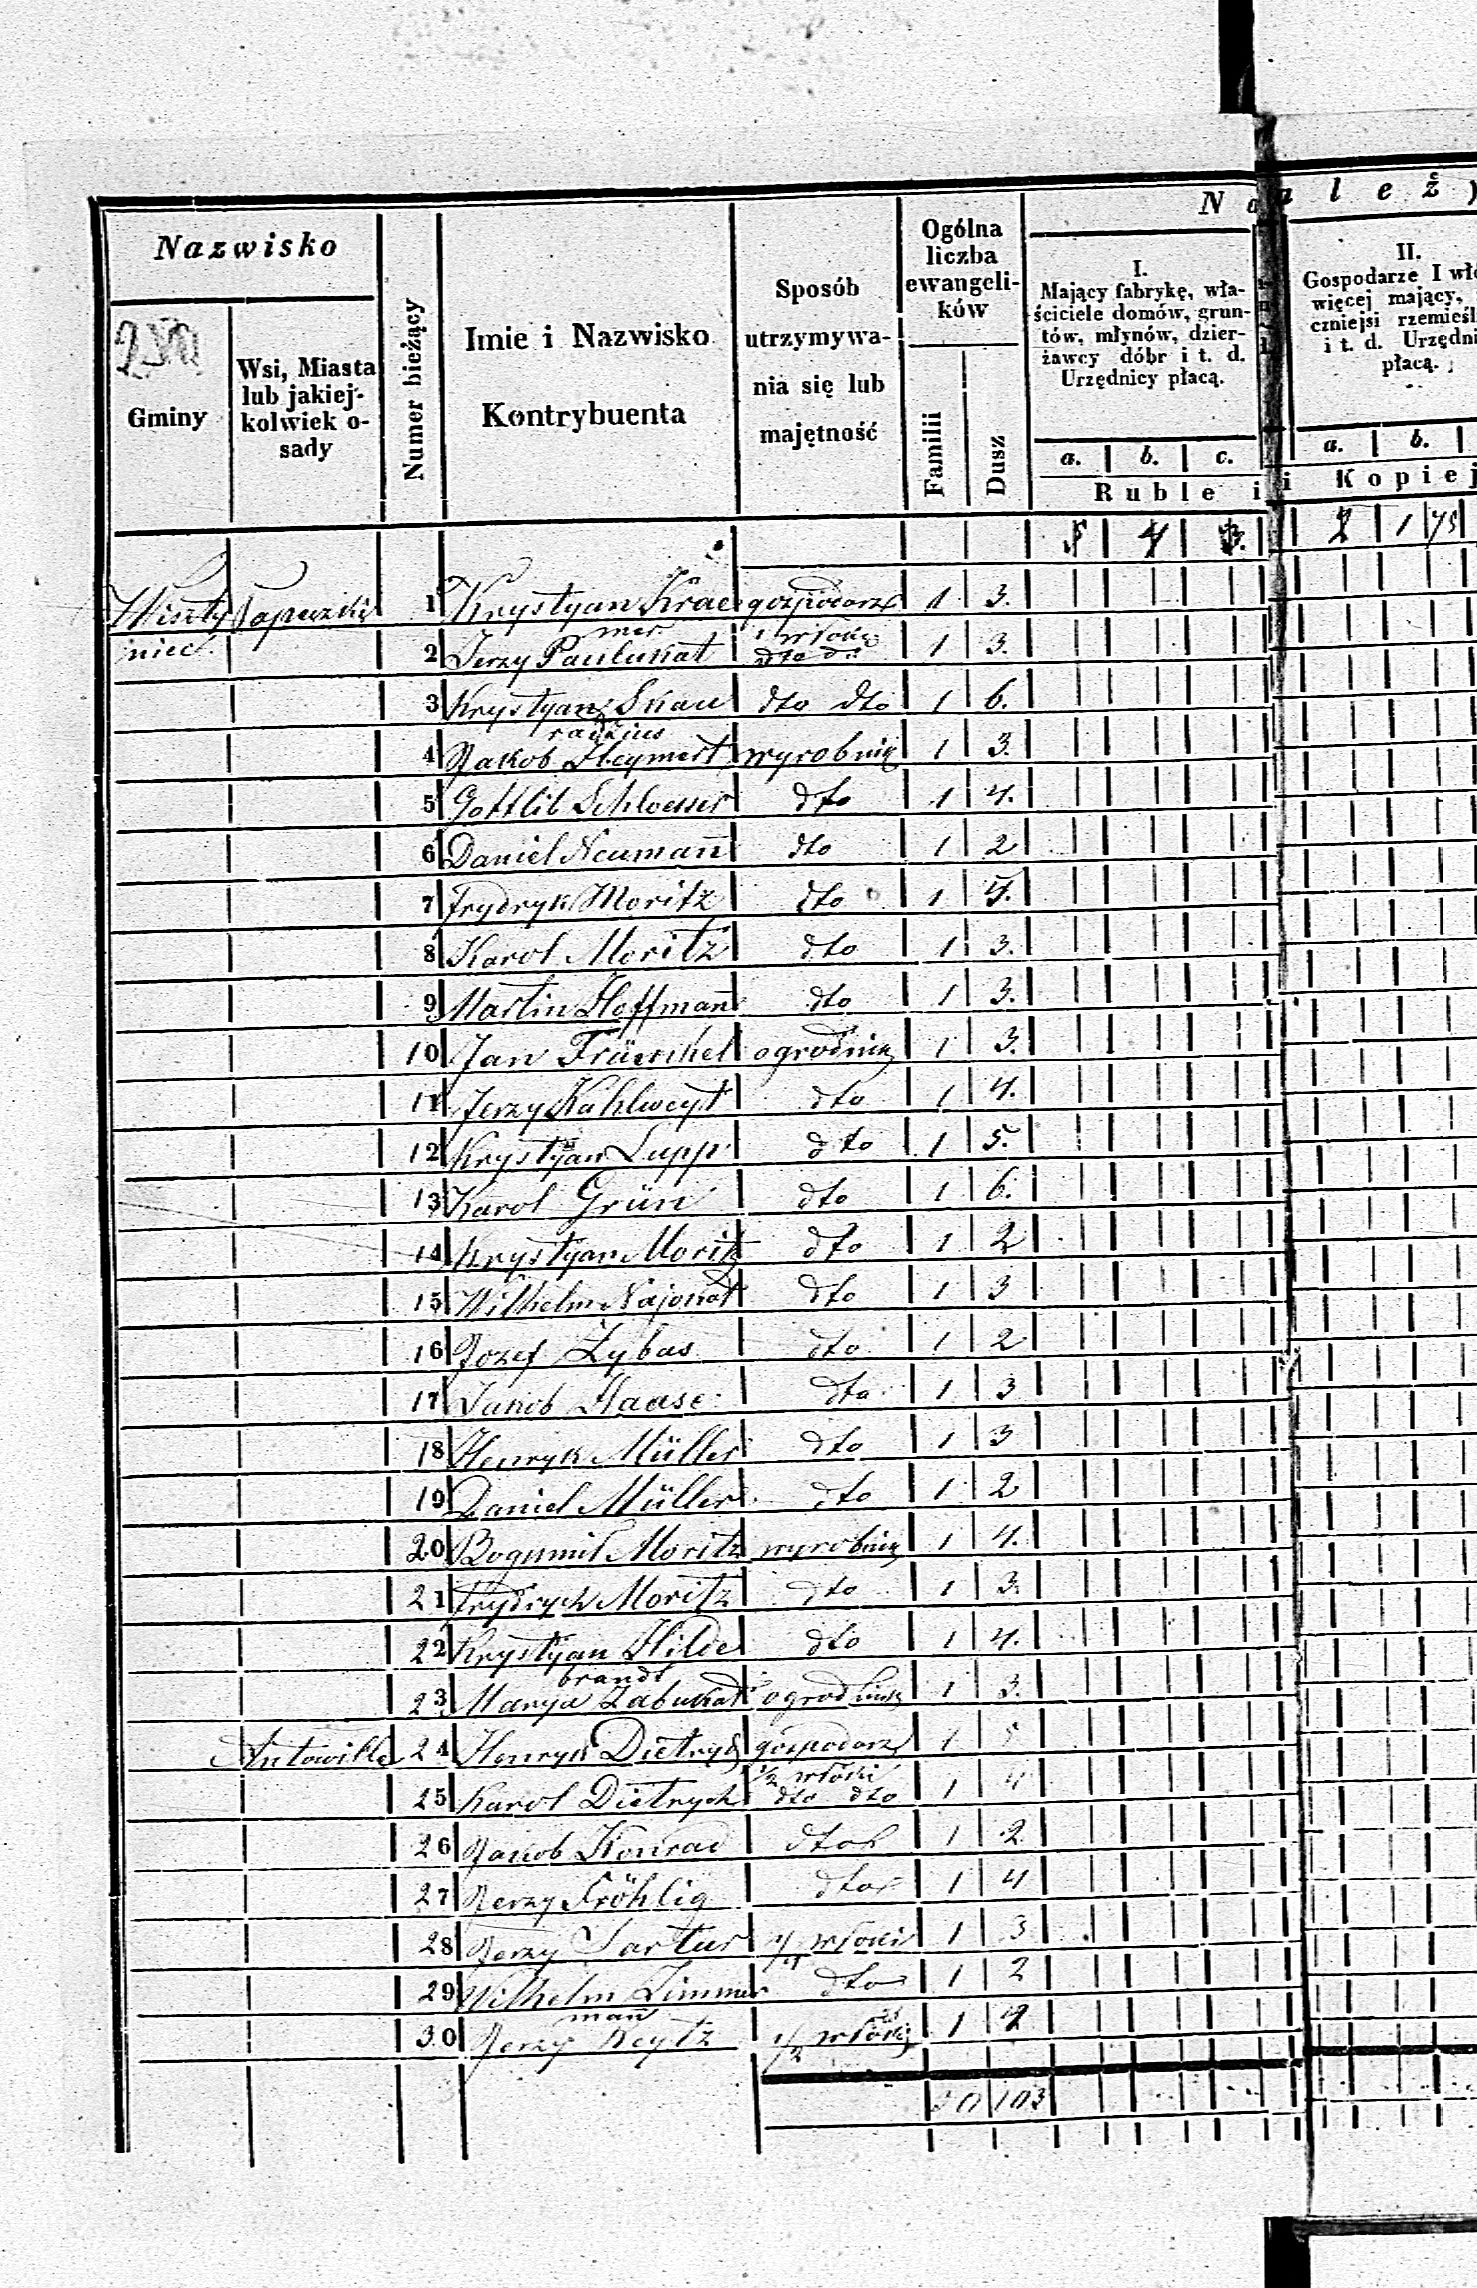 Należy
Nazwisko
Gminy
Wsi, Miasta
lub jakiej-
kolwiek o-
sady
Numer bieżący
Imie i Nazwisko
Kontrybuenta
Sposób
utrzymywa-
nia się lub
majętność
Ogólna
liczba
ewangeli-
ków
Familii
Dusz
I.
Mający fabrykę, wła-
ściciele domów, grun-
tów, młynów, dzier-
żawcy dóbr i t. d.
Urzędnicy płacą.
a. b. c.
II.
Gospodarze I wł
więcej mający,
czniejsi rzemieśl
i t. d. Urzędni
płacą.
a. b.
Ruble i Kopiej
5 4 3. 2 1 75
Wiszty 1 Krystyan Krae gospodarz 1 3.
niec mer 1 włókę
2 Jerzy Paulukat dto dto 1 3.
3 Krystyan Skau dto dto 1 6.
radzius
4 Jakob Heymert wyrobnik 1 3.
5 Gottlib Schloesser dto 1 4.
6 Daniel Neumañ dto 1 2
7 Frydryk Moritz dto 1 4.
8 Karol Moritz dto 1 3.
9 Martin Hoffmañ dto 1 3.
10 Jan ogrodnik 1 3.
11 Jerzy Kahlweyt dto 1 4.
12 Krystyan Lupp dto 1 5.
13 Karol Grün dto 1 6.
14 Krystyan Moritz dto 1 2
15 Wilhelm Najokat dto 1 3
16 Jozef Zybas dto 1 2
17 Jakob Haase dto 1 3
18 Henryk Müller dto 1 3
19 Daniel Müller dto 1 2
20 Bogumił Moritz wyrobnik 1 4.
21 Frydrych Moritz dto 1 3.
22 Krystyan Hilde dto 1 4.
brandt
23 Marya Zabukat ogrodnik 1 3.
Antowille 24 Henryk Dietrych gospodarz 1 5
1/2 włóki
25 Karol Dietrych dto dto 1 4
26 Jakob Konrad dto 1 2
27 Jerzy Fröhlig dto 1 4
28 Jerzy Sartur 1/4 włóki 1 3
29 Wilhelm Zimmer dto 1 2
mañ
30 Jerzy Reytz 1/2 włóki 1
30 103